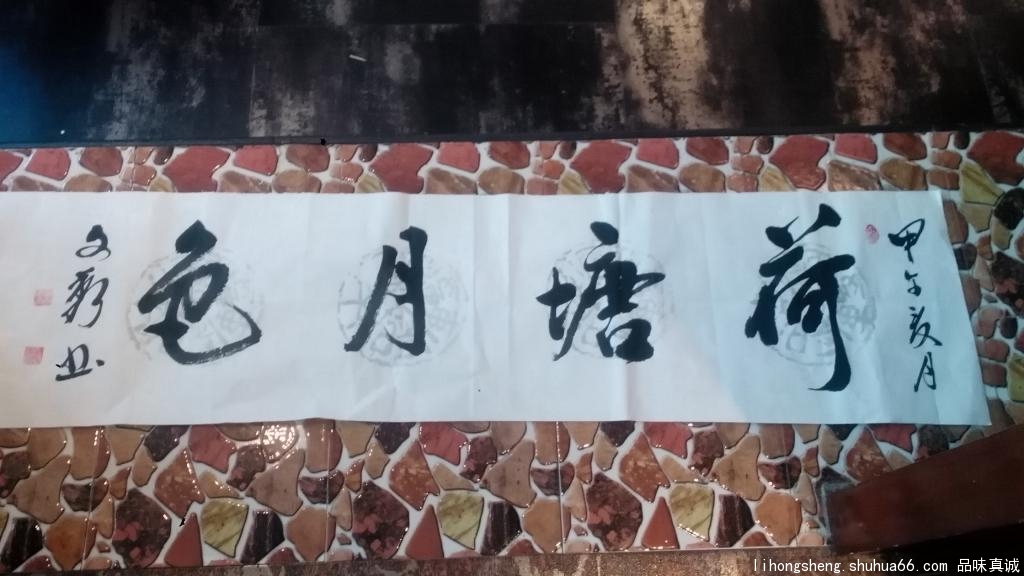 甲午夏月
荷塘月色
lihongsheng.shuhua66.com 品味真诚